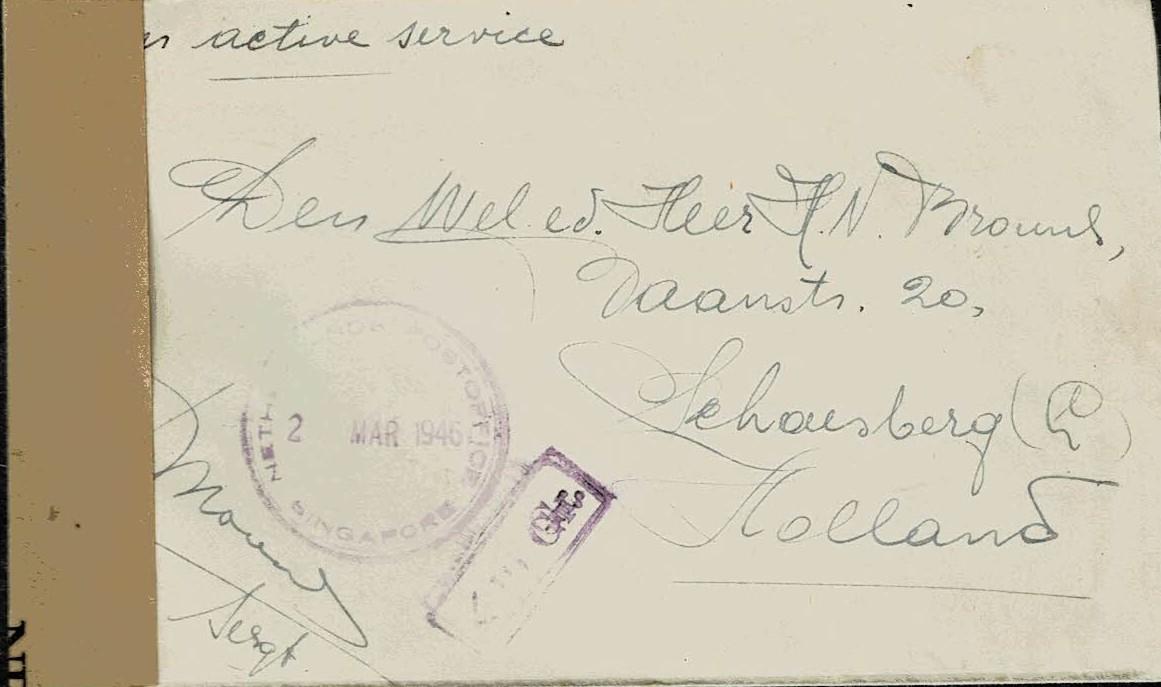 active service
Den Wel. ed. Heer H. N. Brouns,
Daanstr. 20,
Schaesberg (L)
Holland
POSTOFFICE
2 MAR 1946
SINGAPORE
Sergt